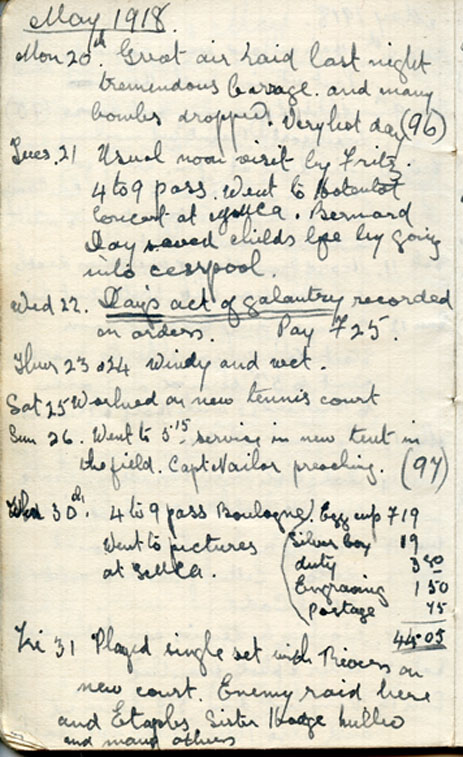 May 1918.
Mon 20th. Great air raid last night
tremendous barrage. and many
bombs dropped. Very hot day (96)
Tues. 21 Usual noon visit by Fritz.
4 to 9 pass. Went to
Concert at YMCA. Bernard
Day saved childs life by going
into cesspool.
Wed 22. Day's act of galantry recorded
on orders. Pay F 25.
Thur 23 & 24 Windy and wet.
Sat 25 Worked on new tennis court
Sun 26. Went to 5.15 service in new tent in
the field. Capt Nailor preaching. (97)
30th. 4 to 9 pass Boulogne. Egg cup F 19
Went to pictures Silver boy 19
at SCA. duty 3 80
Engraving 1 50
Postage 75
44.05
Fri 31 Played single set with Rivers on
new court. Enemy raid here
and Etaples Sister killed
and many others